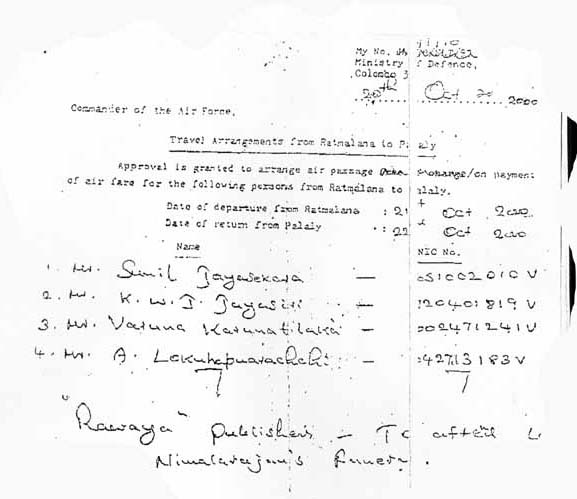 My No.
Ministry of Defence,
Colombo 3
20th Oct 2000
Commander of the Air Force,
Travel Arrangements from Ratmalana to Palaly
Approval is granted to arrange air passage exchange/on payment
of air fare for the following persons from Ratmalana to Palaly.
Date of departure from Ratmalana : 21 Oct 2000
Date of return from Palaly : 22 Oct 2000
Name NIC No.
1. Mr. Sunil Jayasekara — 51002010 V
2. Mr. K. W. J. Jayasiri — 20401819 V
3. Mr. Varuna Karunatilaka — 002471241 V
4. Mr. A. Lokuhapuarachchi — 42713183 V
"Ravaya" publishers – To attend
Nimalarajan's Funeral.